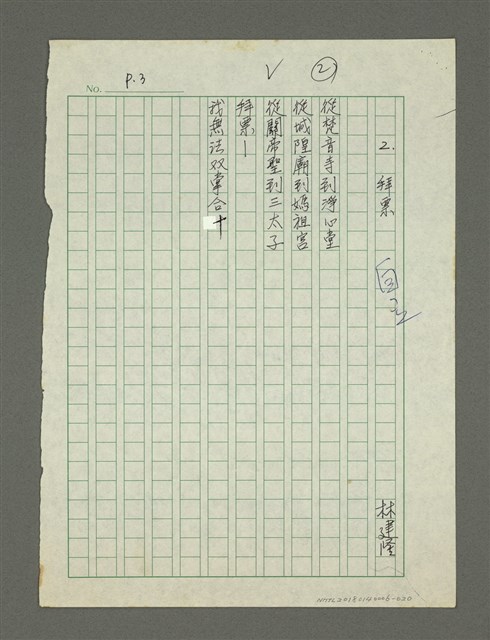 No. P.3
V ②
2. 拜票
林建隆
從梵音寺到淨心堂
從城隍廟到媽祖宮
從關帝聖到三太子
拜票—
我無法双掌合十